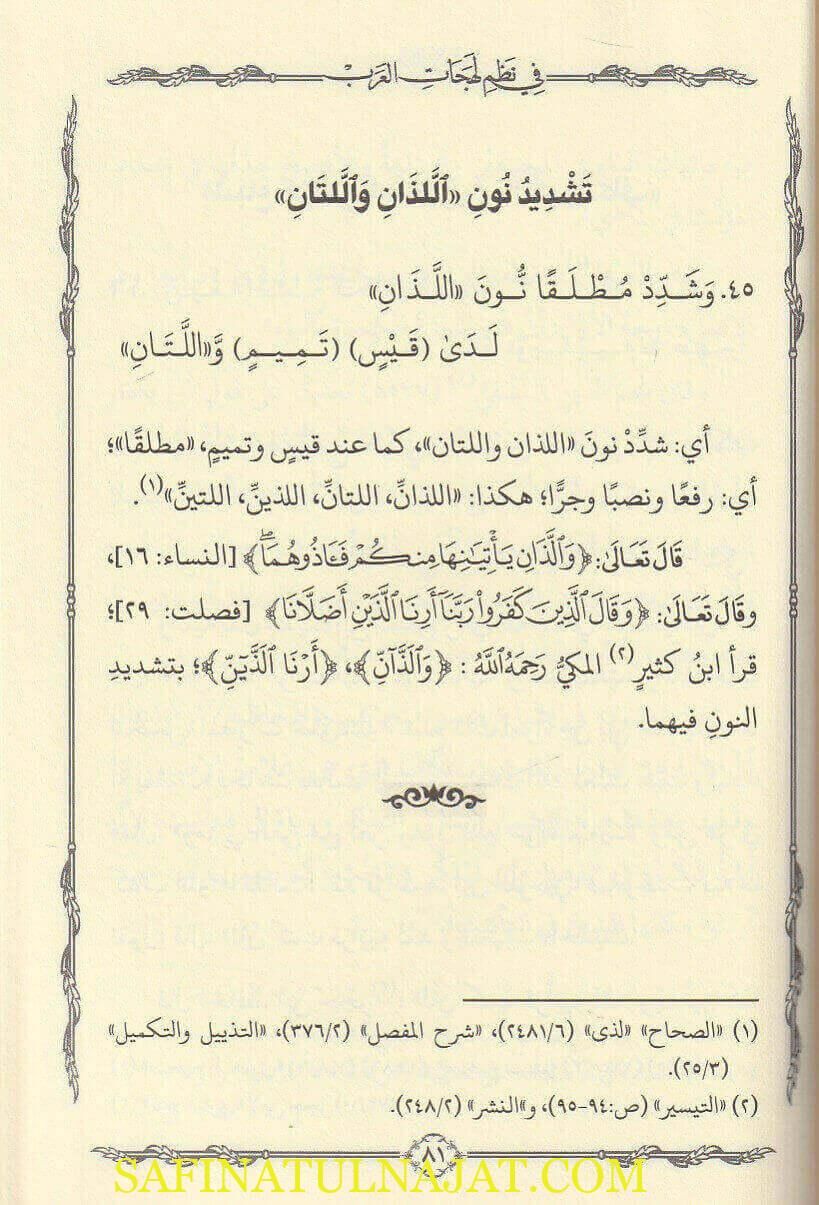 في نَظْمِ لَهَجَاتِ العَرَبْ
تَشْدِيدُ نُونِ «ٱللَّذَانِ وَٱللَّتَانِ»
٤٥. وَشَدِّدْ مُطْلَقًا نُّونَ «اللَّذَانِ»
لَدَىٰ (قَيْسٍ) (تَمِيمٍ) وَّ«اللَّتَانِ»
أي: شدِّدْ نونَ «اللذان واللتان»، كما عند قيسٍ وتميمٍ، «مطلقًا»؛
أي: رفعًا ونصبًا وجرًّا؛ هكذا: «اللذانِّ، اللتانِّ، اللذينِّ، اللتينِّ»(١).
قَالَ تَعَالَىٰ: ﴿وَٱلَّذَانِ يَأْتِيَٰنِهَا مِنكُمْ فَـَٔاذُوهُمَاۖ﴾ [النساء: ١٦]،
وقَالَ تَعَالَىٰ: ﴿وَقَالَ ٱلَّذِينَ كَفَرُوا۟ رَبَّنَآ أَرِنَا ٱلَّذَيْنِ أَضَلَّانَا﴾ [فصلت: ٢٩]؛
قرأ ابنُ كثيرٍ(٢) المكيُّ رَحِمَهُ ٱللَّهُ : ﴿وَٱلَّذَآنِّ﴾، ﴿أَرْنَا ٱلَّذَيْنِّ﴾؛ بتشديدِ
النونِ فيهما.
(١) «الصحاح» «لذى» (٢٤٨١/٦)، «شرح المفصل» (٣٧٦/٢)، «التذييل والتكميل»
(٢٥/٣).
(٢) «التيسير» (ص:٩٤-٩٥)، و«النشر» (٢٤٨/٢).
٨١
SAFINATULNAJAT.COM